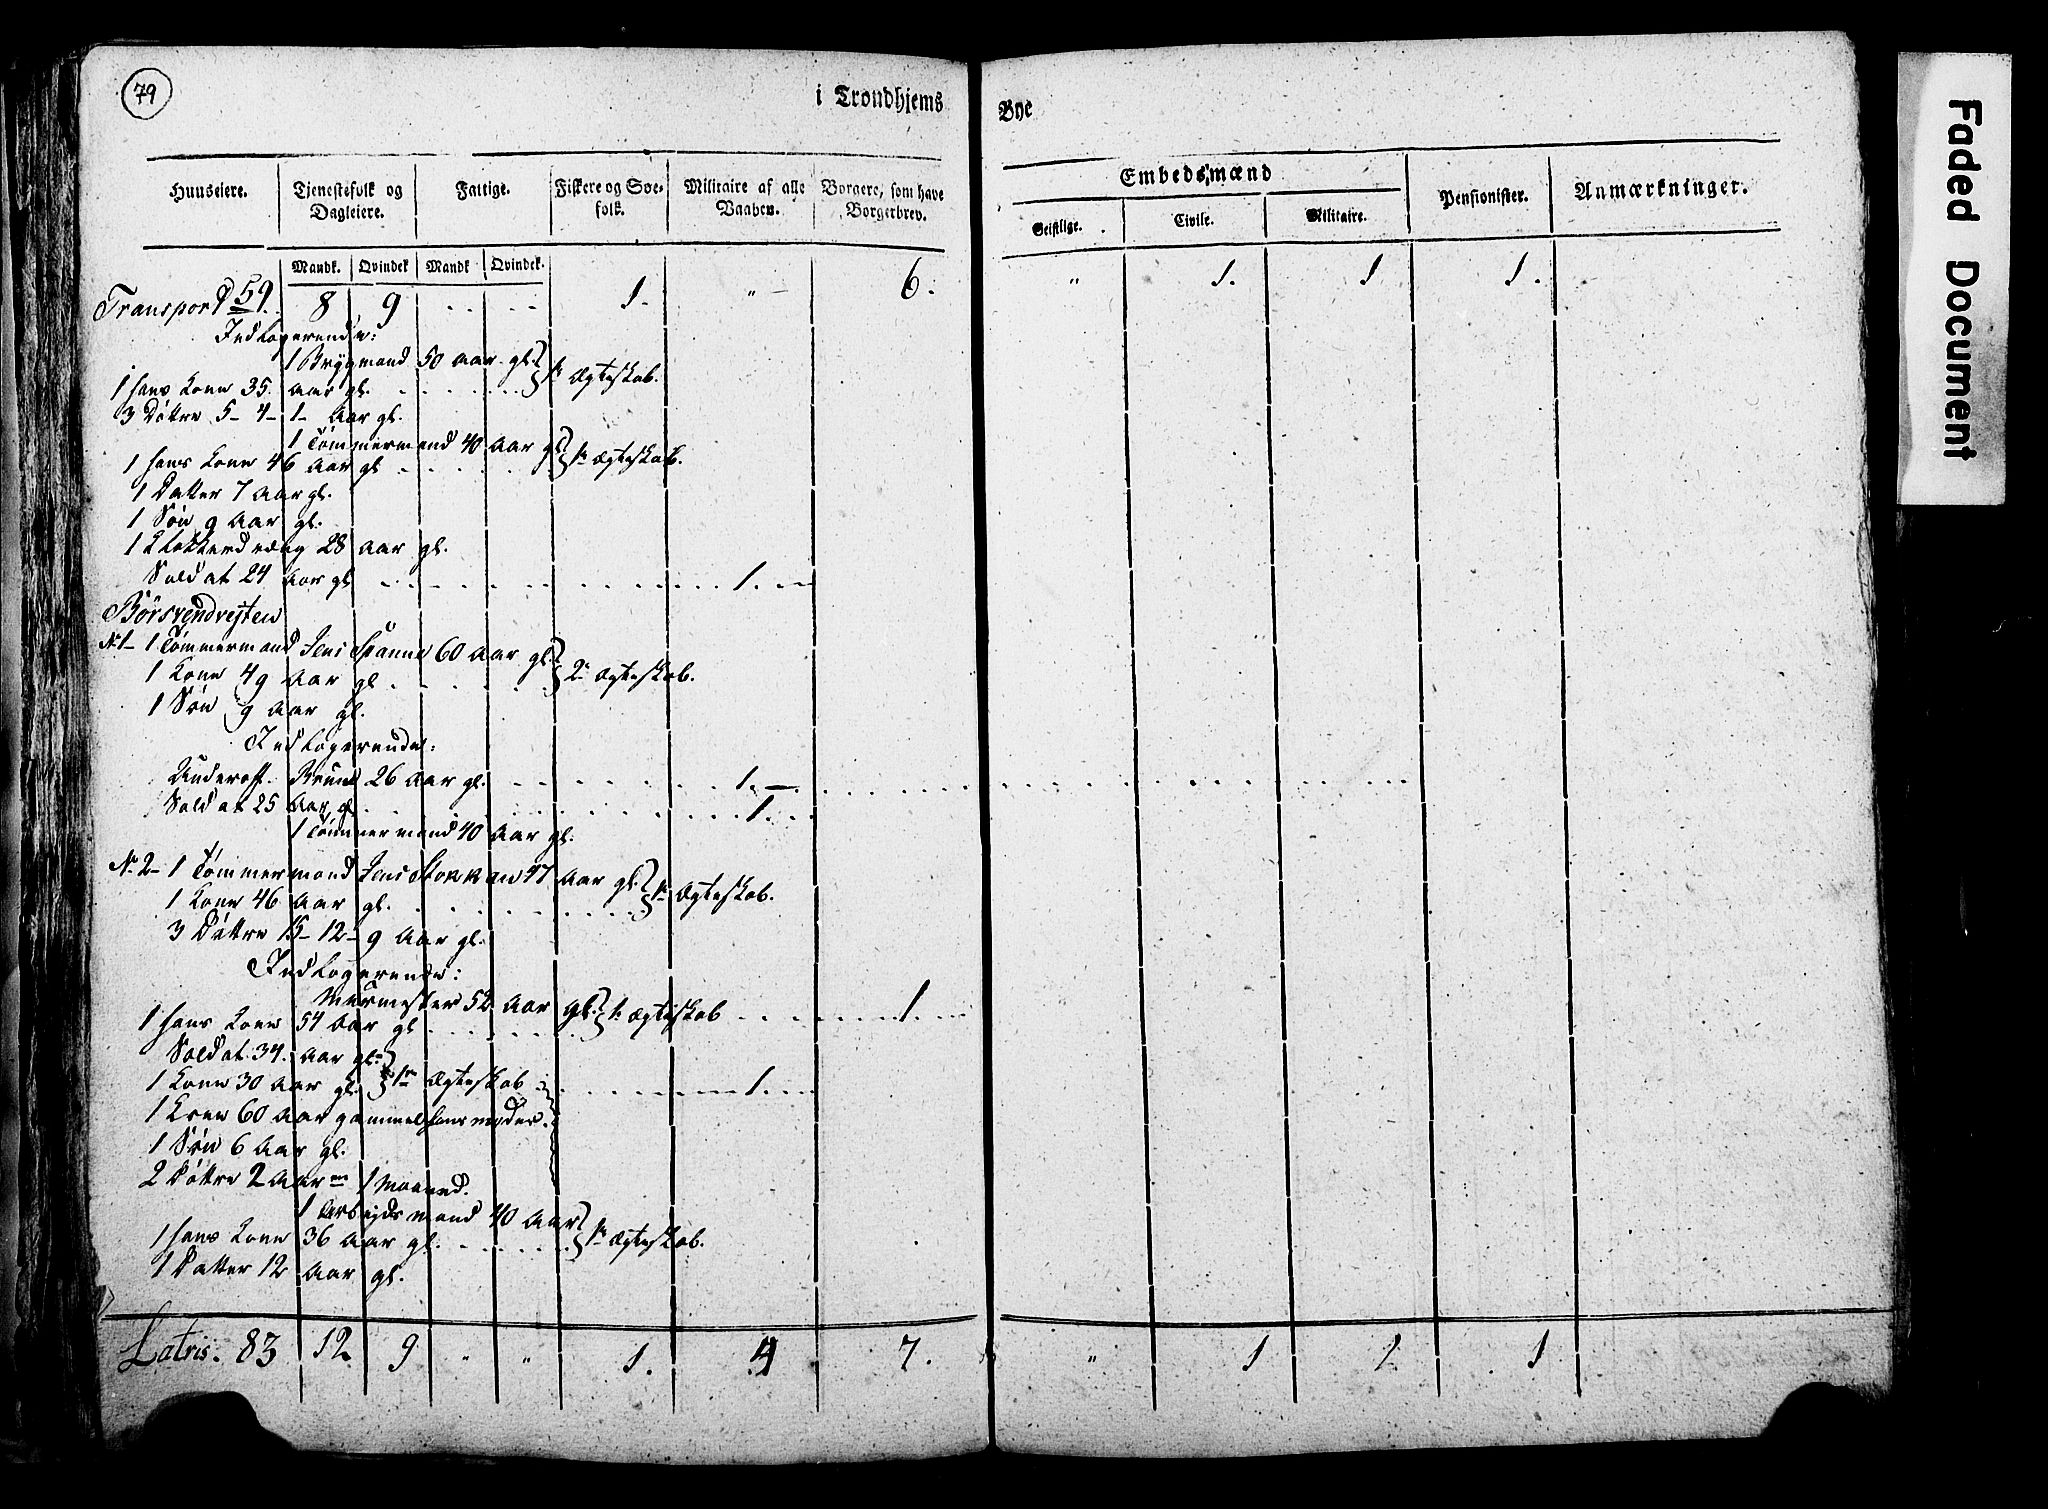 79
i Trondhjems Bye
Huuseiere. Tienestefolk og Dagleiere. Fattige. Fiskere og Søefolk. Militaire af alle Vaaben. Borgere, som have Borgerbrev. Embedsmænd Pensionister. Anmærkninger.
Geistlige. Civile. Militaire.
Mandk. Qvindek Mandk Qvindek.
Transport 59. 8 9 1. " 6. " 1. 1 1.
Indlogerende:
1 Brygmand 50 Aar gl.
1 hans Kone 35. Aar gl. 1ste Ægteskab.
3 Døttre 5- 4- 1- Aar gl.
1 Tømmermand 40 Aar gl.
1 hans Kone 46 Aar gl 1ste Ægteskab.
1 Datter 7 Aar gl.
1 Søn 9 Aar gl.
1 28 Aar gl.
Soldat 24 Aar gl 1.
N 1- 1 Tømmermand Jens 60 Aar gl.
1 Kone 49 Aar gl 2. Ægteskab.
1 Søn 9 Aar gl.
Indlogerende:
Underoff. 26 Aar gl. 1.
Soldat 25 Aar gl. 1.
1 Tømmermand 40 Aar gl.
N. 2- 1 Tømmermand Jens 47 Aar gl.
1 Kone 46 Aar gl. 1. Ægteskab.
3 Døttre 15- 12- 9 Aar gl.
Indlogerende:
Murmester 52 Aar gl. 1
1 hans Kone 54 Aar gl 1. Ægteskab 1.
Soldat 34. Aar gl.
1 Kone 30 Aar gl. 1ste Ægteskab 1.
1 Kone 60 Aar gammel hans moder.
1 Søn 6 Aar gl.
2 Døttre 2 Aar 1 Maaned.
1 Arbejdsmand 40 Aar
1 hans Kone 36 Aar gl. 1ste Ægteskab.
1 Datter 12 Aar gl.
Latris. 83 12 9 " " 1. 4 7. " 1 1 1
Faded Document